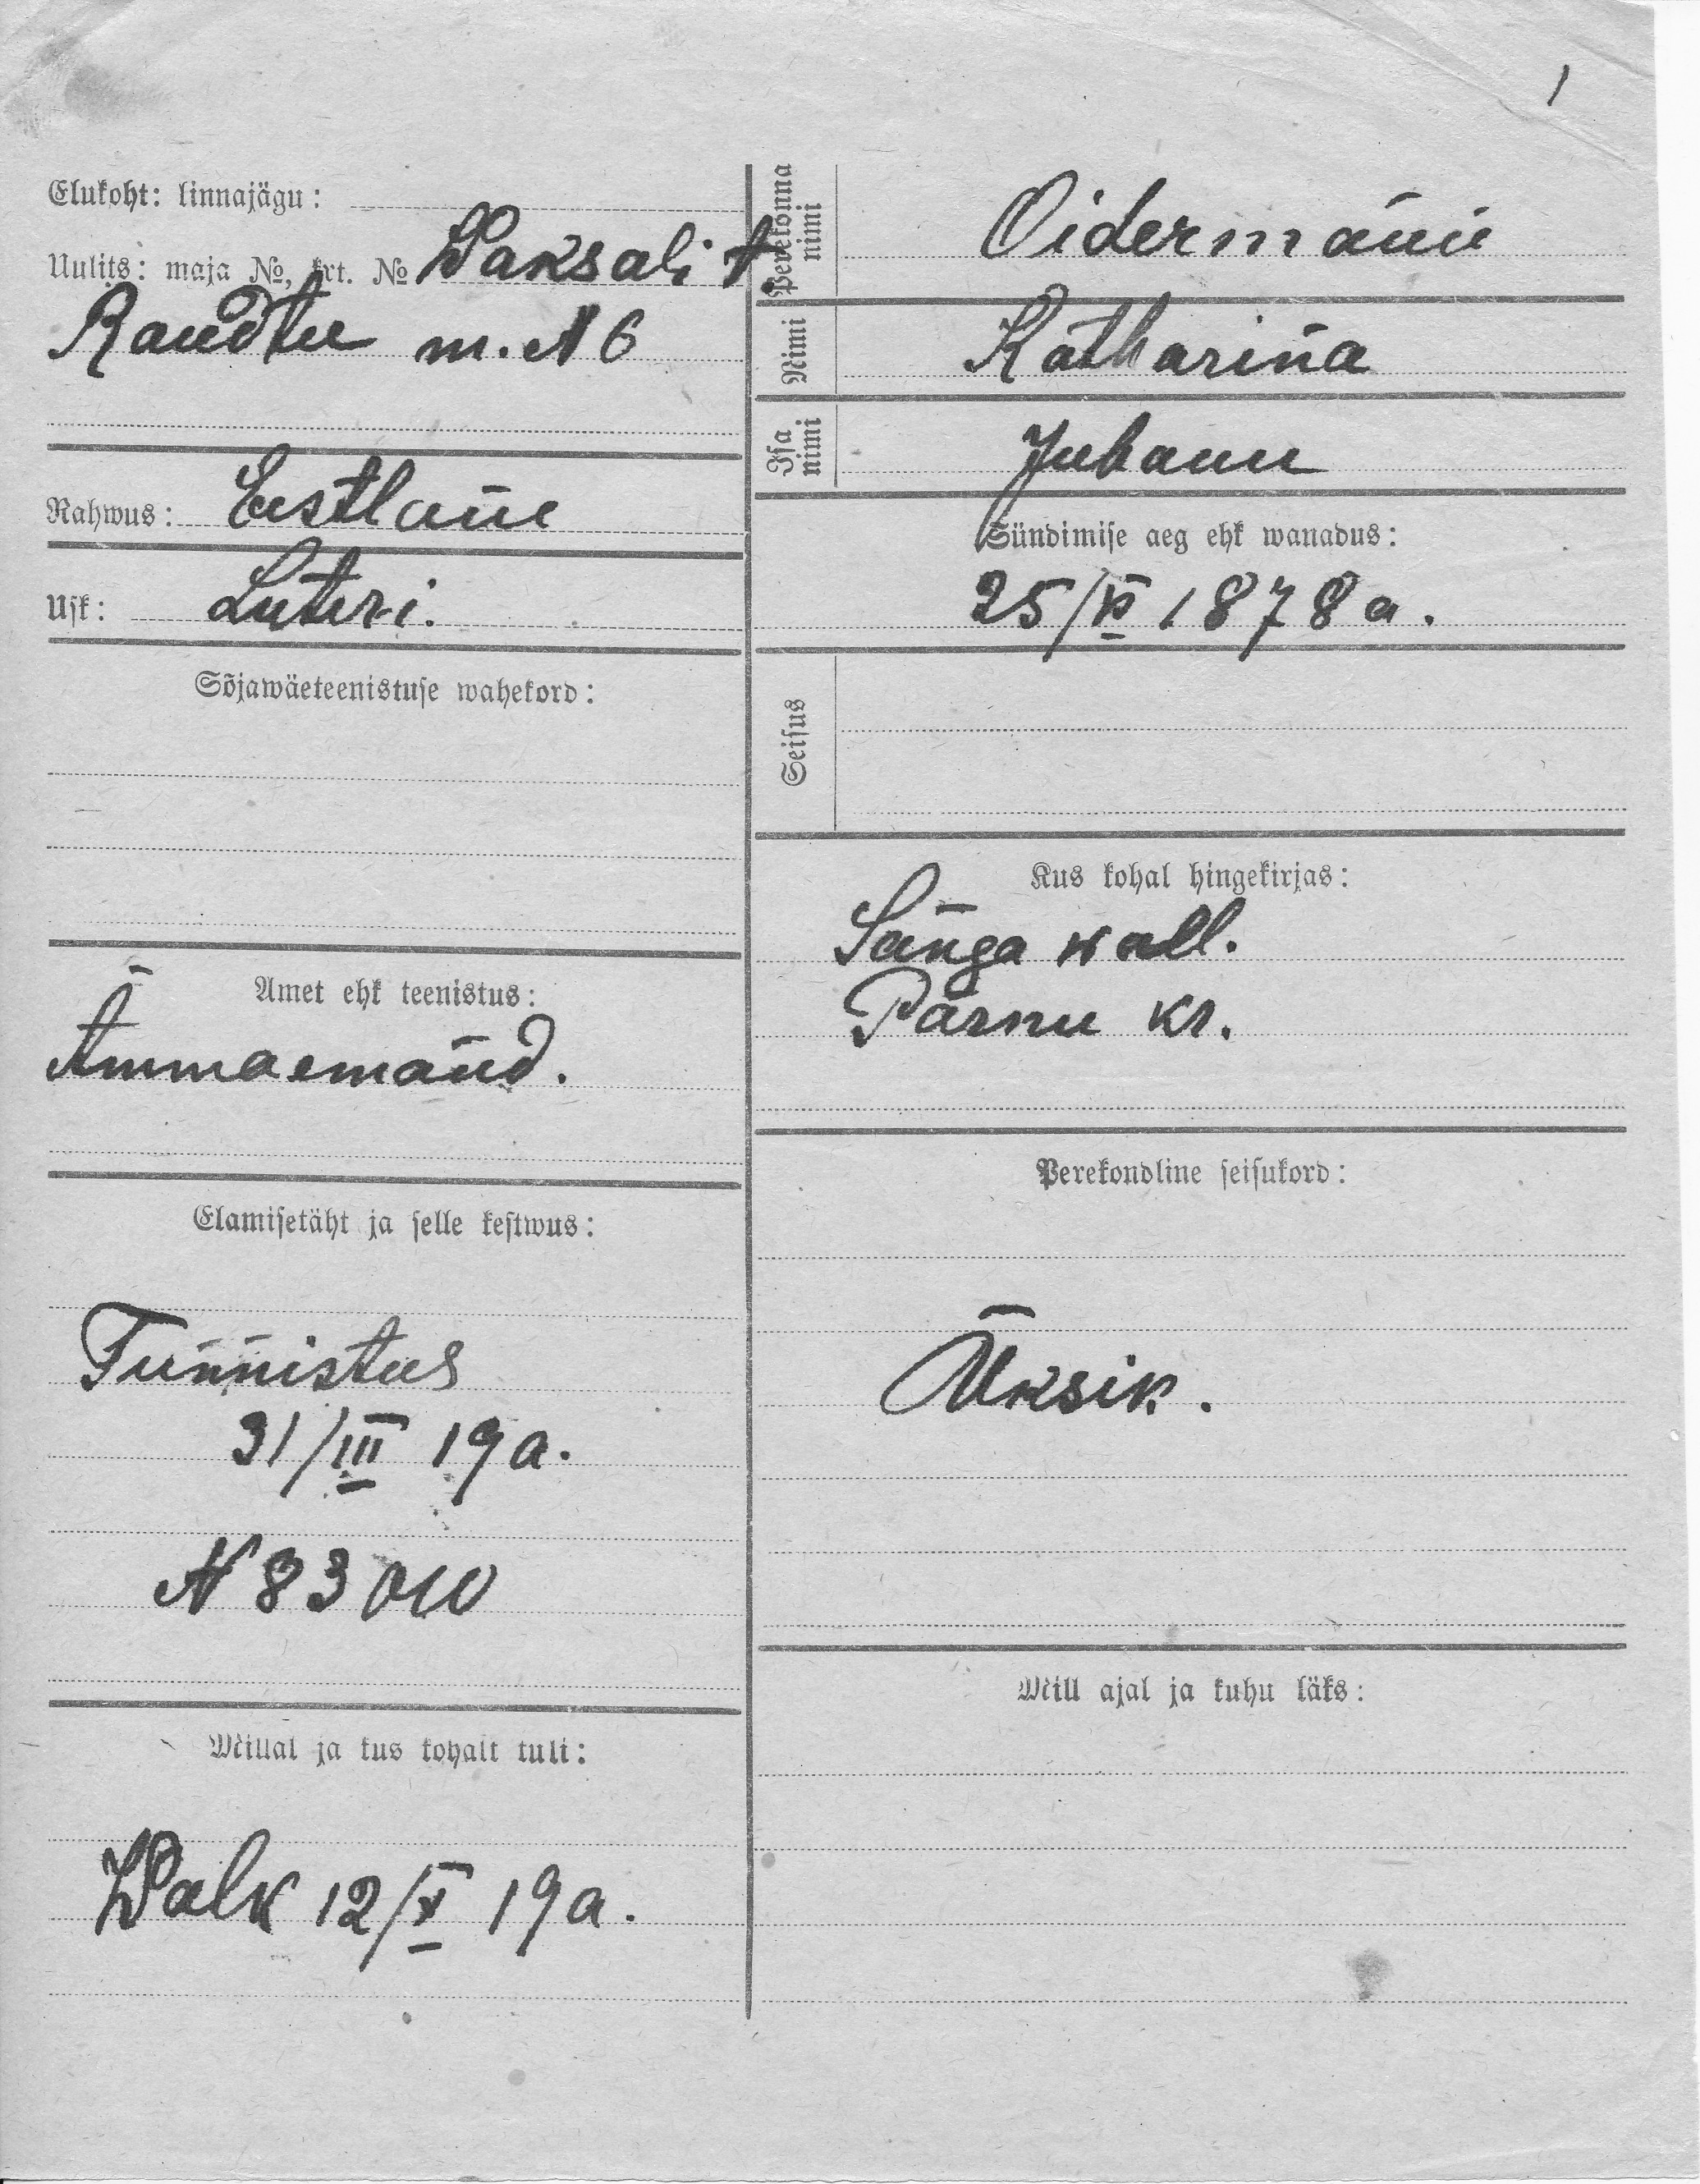 1
Elukoht: linnajägu:
Uulits: maja №, krt. № Waksali t.
Raudtee m. N 6
Rahwus: Eestlane
Usk: Luteri.
Sõjawäeteenistuse wahekord:
Amet ehk teenistus:
Ämmaemand.
Elamisetäht ja selle kestwus:
Tunnistus
31/III 19 a.
N 83010
Millal ja kus kohalt tuli:
Walk 12/X 19 a.
Perekonna nimi
Oidermann
Nimi
Katharina
Isa nimi
Juhann
Sündimise aeg ehk wanadus:
1878 a.
Seisus
Kus kohal hingekirjas:
Sanga wall.
Pärnu kr.
Perekondline seisukord:
Üksik.
Mill ajal ja kuhu läks: